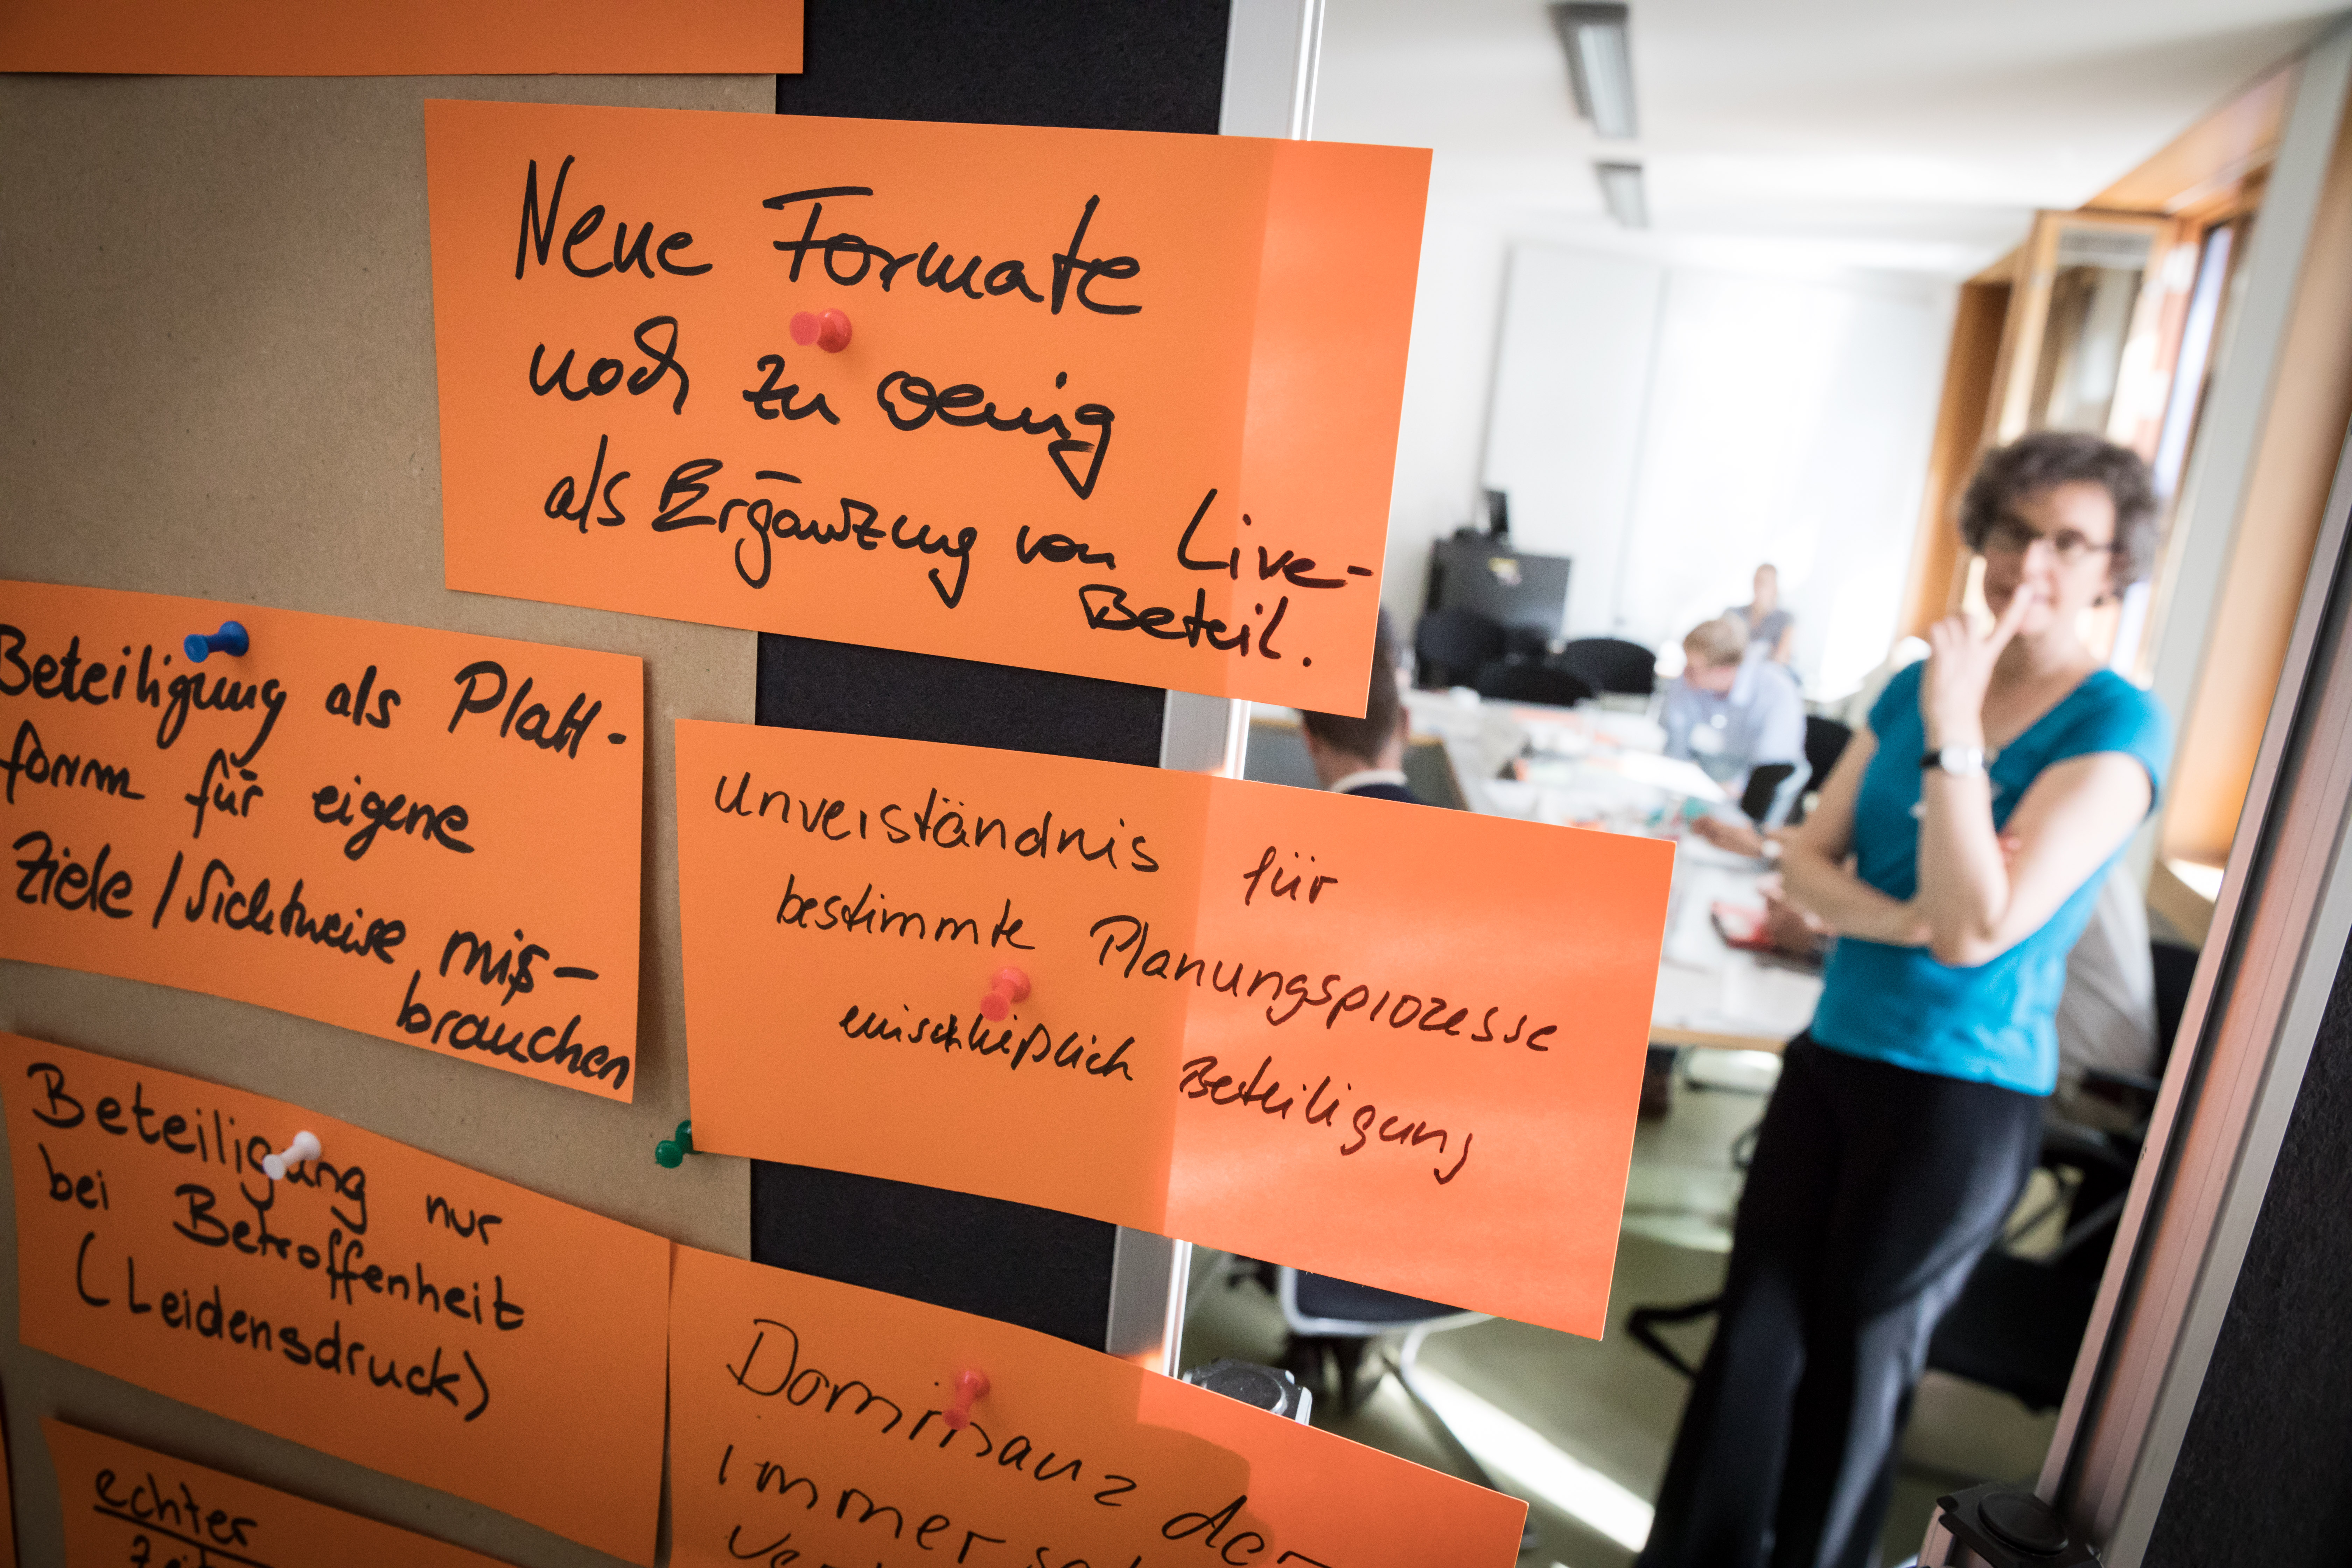 Neue Formate
noch zu wenig
als Ergänzung von Live-
Beteil.
Beteiligung als Platt-
form für eigene
Ziele / Sichtweise miß-
brauchen
Unverständnis für
bestimmte Planungsprozesse
einschließlich Beteiligung
Beteiligung nur
bei Betroffenheit
(Leidensdruck)
Dominanz der
immer
echter